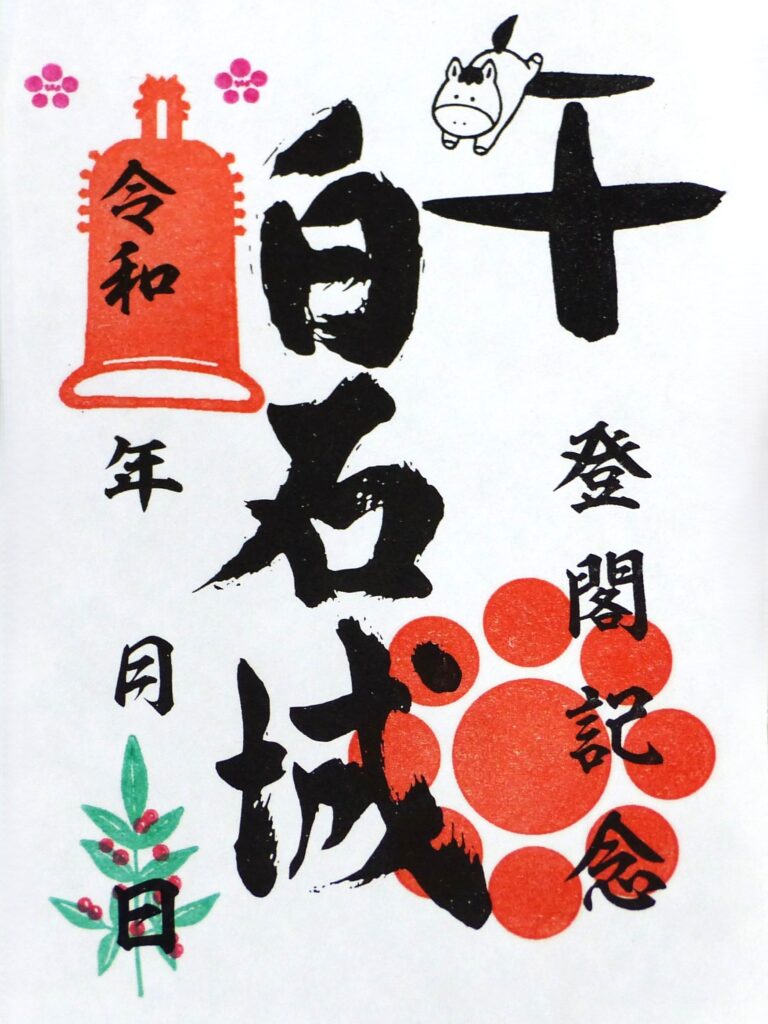 午
登閣記念
白石城
令和 年 月 日